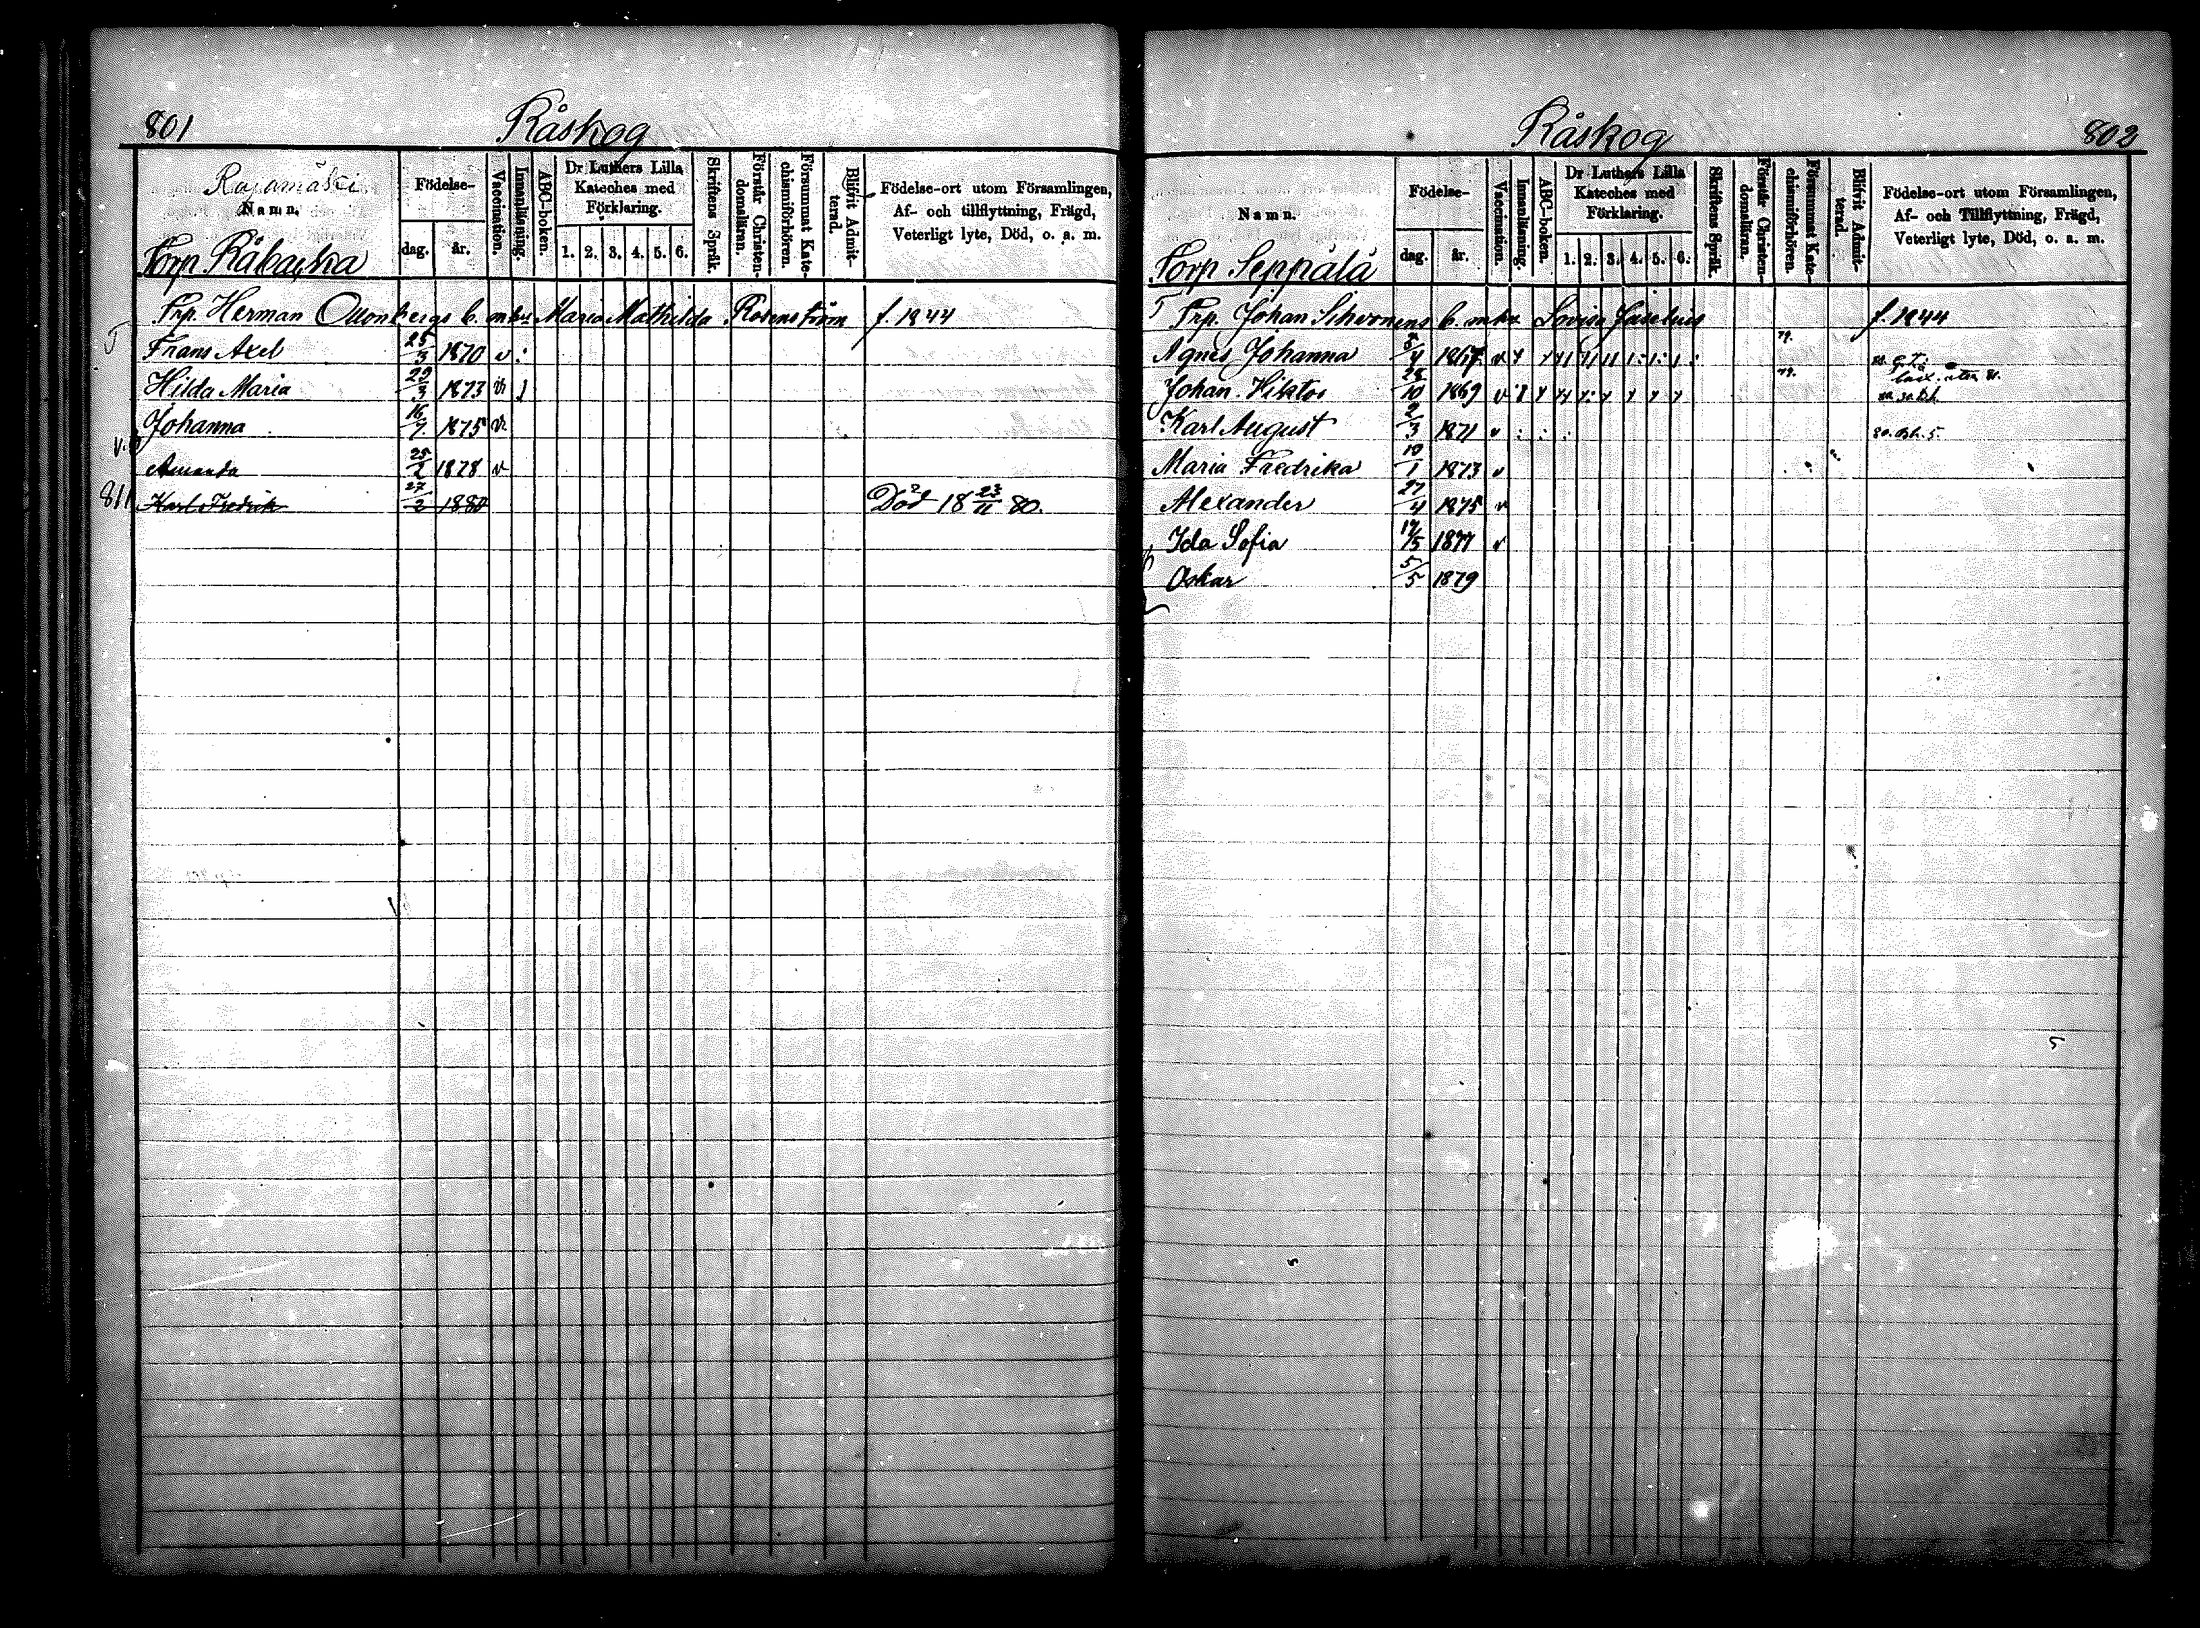 801
Råskog
Rajamäki
Namn.
Torp Råbacka
Födelse-
dag.
år.
Vaccination.
Innanläsning.
ABC-boken.
Dr Luthers Lilla
Kateches med
Förklaring.
1. 2. 3. 4. 5. 6.
Skriftens Språk.
Förstår Christen-
domsläran.
Försummat Kate-
chismiförhören.
Blifvit Admit-
terad.
Födelse-ort utom Församlingen,
Af- och tillflyttning, Frägd,
Veterligt lyte, Död, o. a. m.
Trp. Herman b. Maria Mathilda Rosenström f. 1844
Frans Axel 25/3 1870 v :
Hilda Maria 29/3 1873 v
Johanna 16/7 1875 v.
Amanda 25/2 1878 v
811 Karl Fredrik 27/2 1880 Död 18 23/11 80.
Råskog
802
Namn.
Torp Seppälä
Födelse-
dag.
år.
Vaccination.
Innanläsning.
ABC-boken.
Dr Luthers Lilla
Kateches med
Förklaring.
1. 2. 3. 4. 5. 6.
Skriftens Språk.
Förstår Christen-
domsläran.
Försummat Kate-
chismiförhören.
Blifvit Admit-
terad.
Födelse-ort utom Församlingen,
Af- och Tillflyttning, Frägd,
Veterligt lyte, Död, o. a. m.
Trp. Johan b. Lovisa f. 1844
Agnes Johanna 1867 v 79.
Johan Viktor 28/10 1869 v 79.
Karl August 2/3 1871 v : : :
Maria Fredrika 10/1 1873 v
Alexander 27/4 1875 v
Ida Sofia 19/5 1877 v
Oskar 5/5 1879